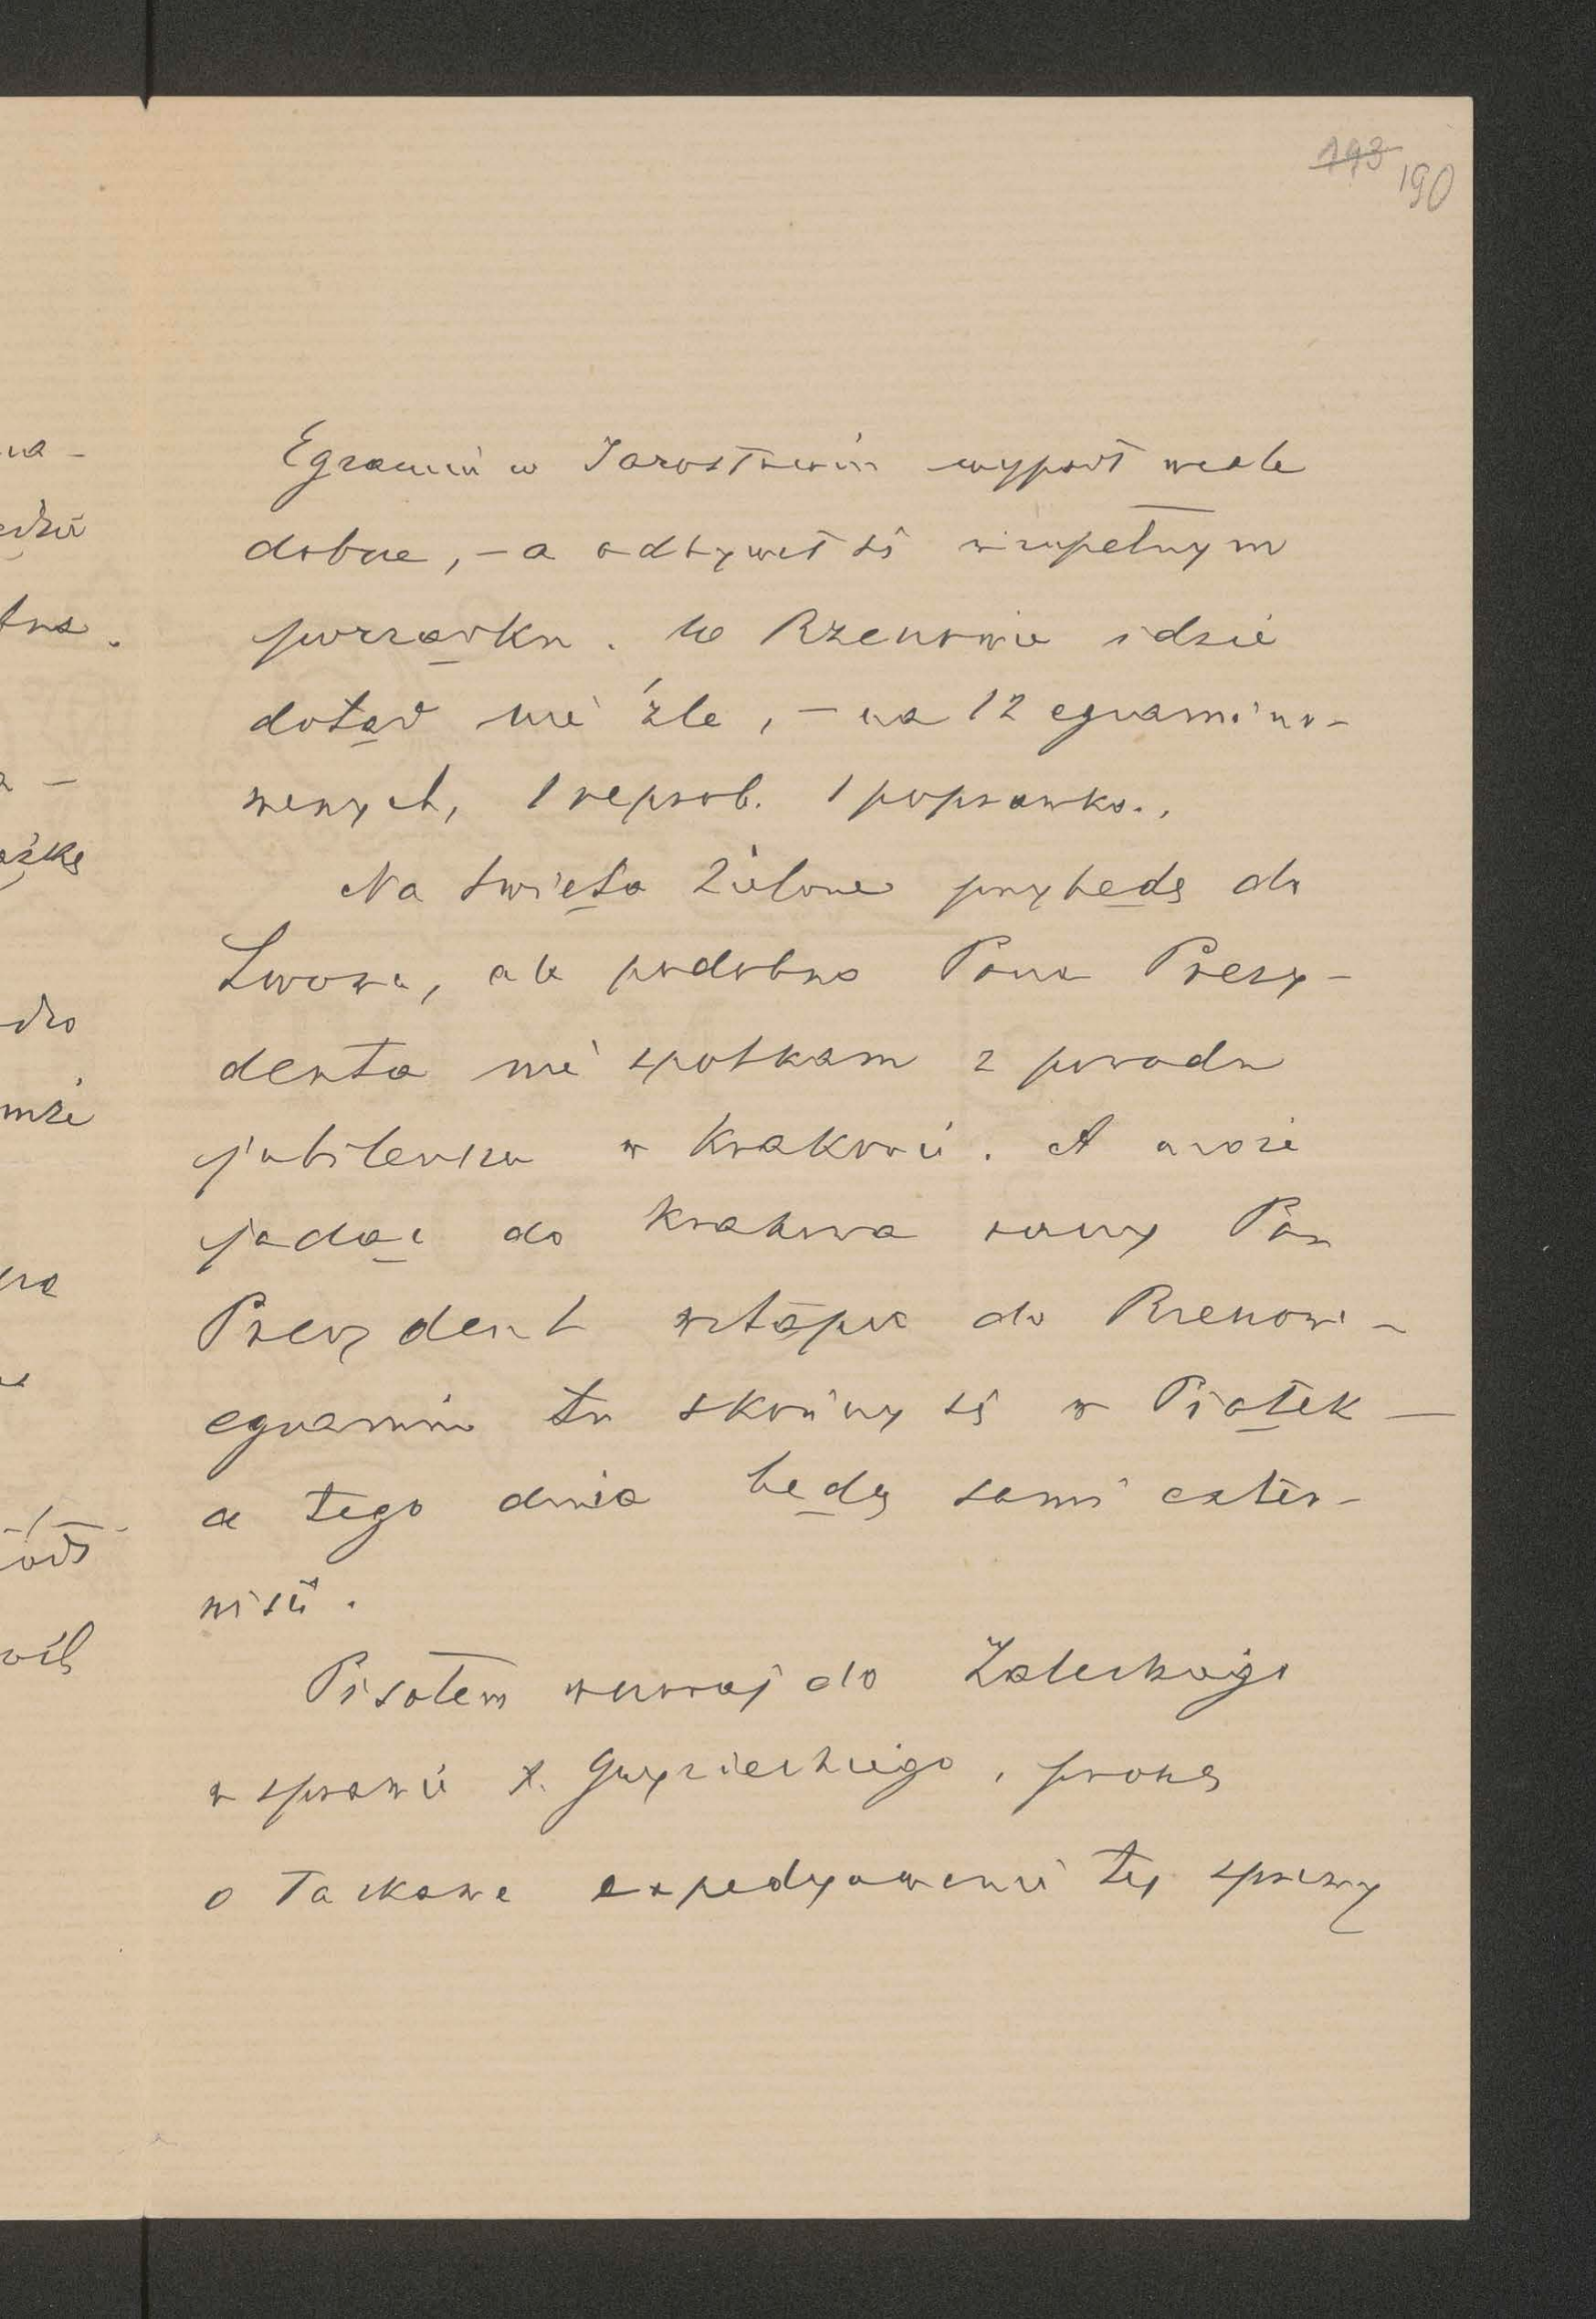 193 190
Egzamin w Jarosławiu wypadł wcale
dobrze, – a odbywał się w zupełnym
porządku. W Rzeszowie idzie
dotąd nie źle, – na 12 egzamino-
wanych, 1 reprob. 1 poprawka.,
Na święta Zielone przybędę do
Lwowa, ale podobno Pana Prezy-
denta nie spotkam z powodu
jubileuszu w Krakowie. A może
jadąc do Krakowa raczy Pan
Prezydent wstąpić do Rzeszowa –
egzamin tu skończy się w Piątek –
a tego dnia będą sami exter-
niści.
Pisałem wczoraj do Zaleskiego
w sprawie X. Gwyzieckiego, proszę
o łaskawe expedyowanie tej sprawy